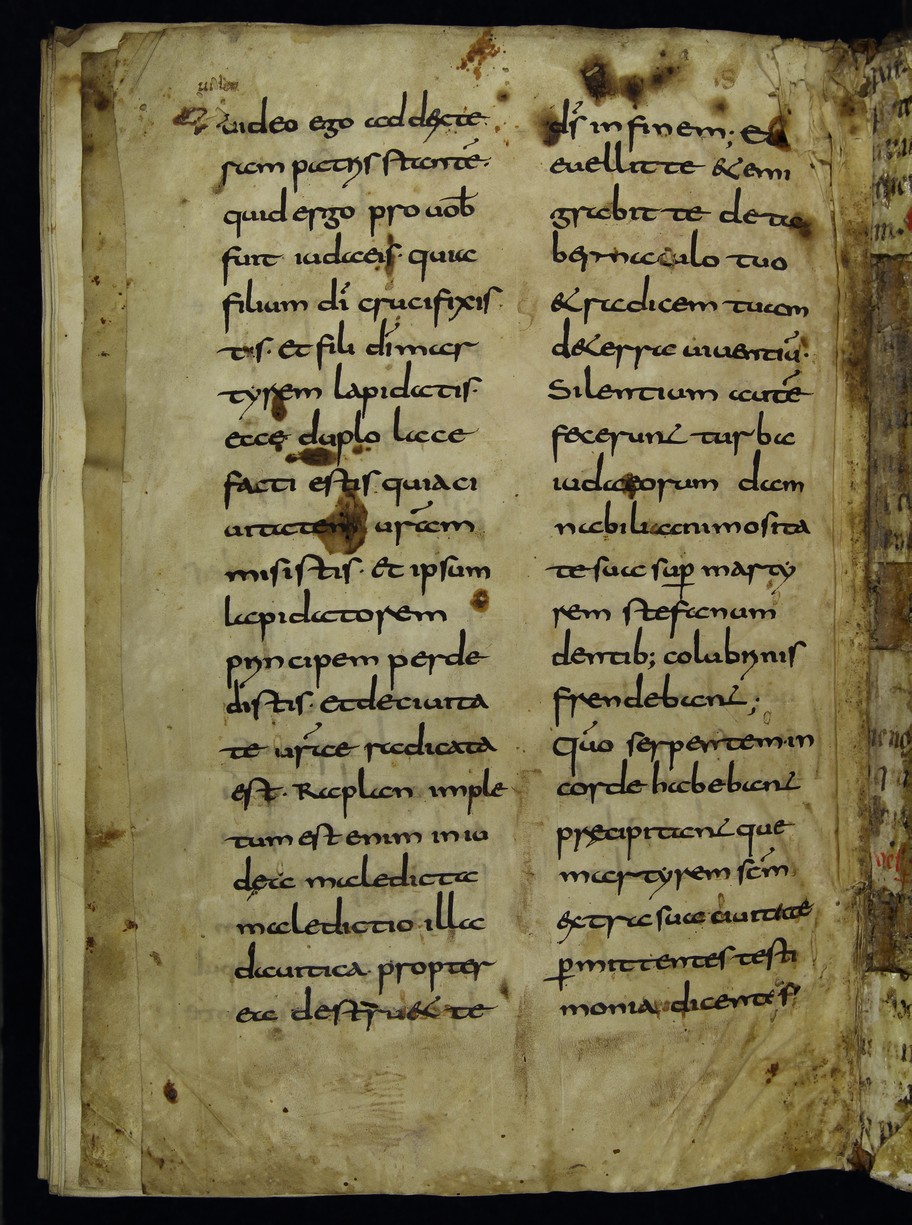 video
video ego ad dexte
ram patris stantē·
quid ergo pro vob̄
funt iudaeis· quia
filium dī crucifixis
tis· et fili dī mar
tyrem lapidatis·
ecce duplo lace
facti estis quia ci
uitatem urām
misistis· et ipsum
lapidatorem
principem perde
distis· et de ciuita
te urāe radicata
est· Raplan imple
tum est enim in iu
dęa maledicta
maledictio illa
dauitica propter
ea destruet te
dī̄s in finem; et
euellit te et emi
grabit te de ta
bernaculo tuo
et radicem tuam
de terra uiuentiū·
Silentium autē
fecerunt turbae
iudaeorum dam
nabili animosita
te sua sup̱ marty
rem stefanum
dentib; colubrinis
frendebant;
Quō serpentem in
corde habebant
pręcipitant que
martyrem scm̄
extra sua ciuitate
p̱mittentes testi
monia dicentes